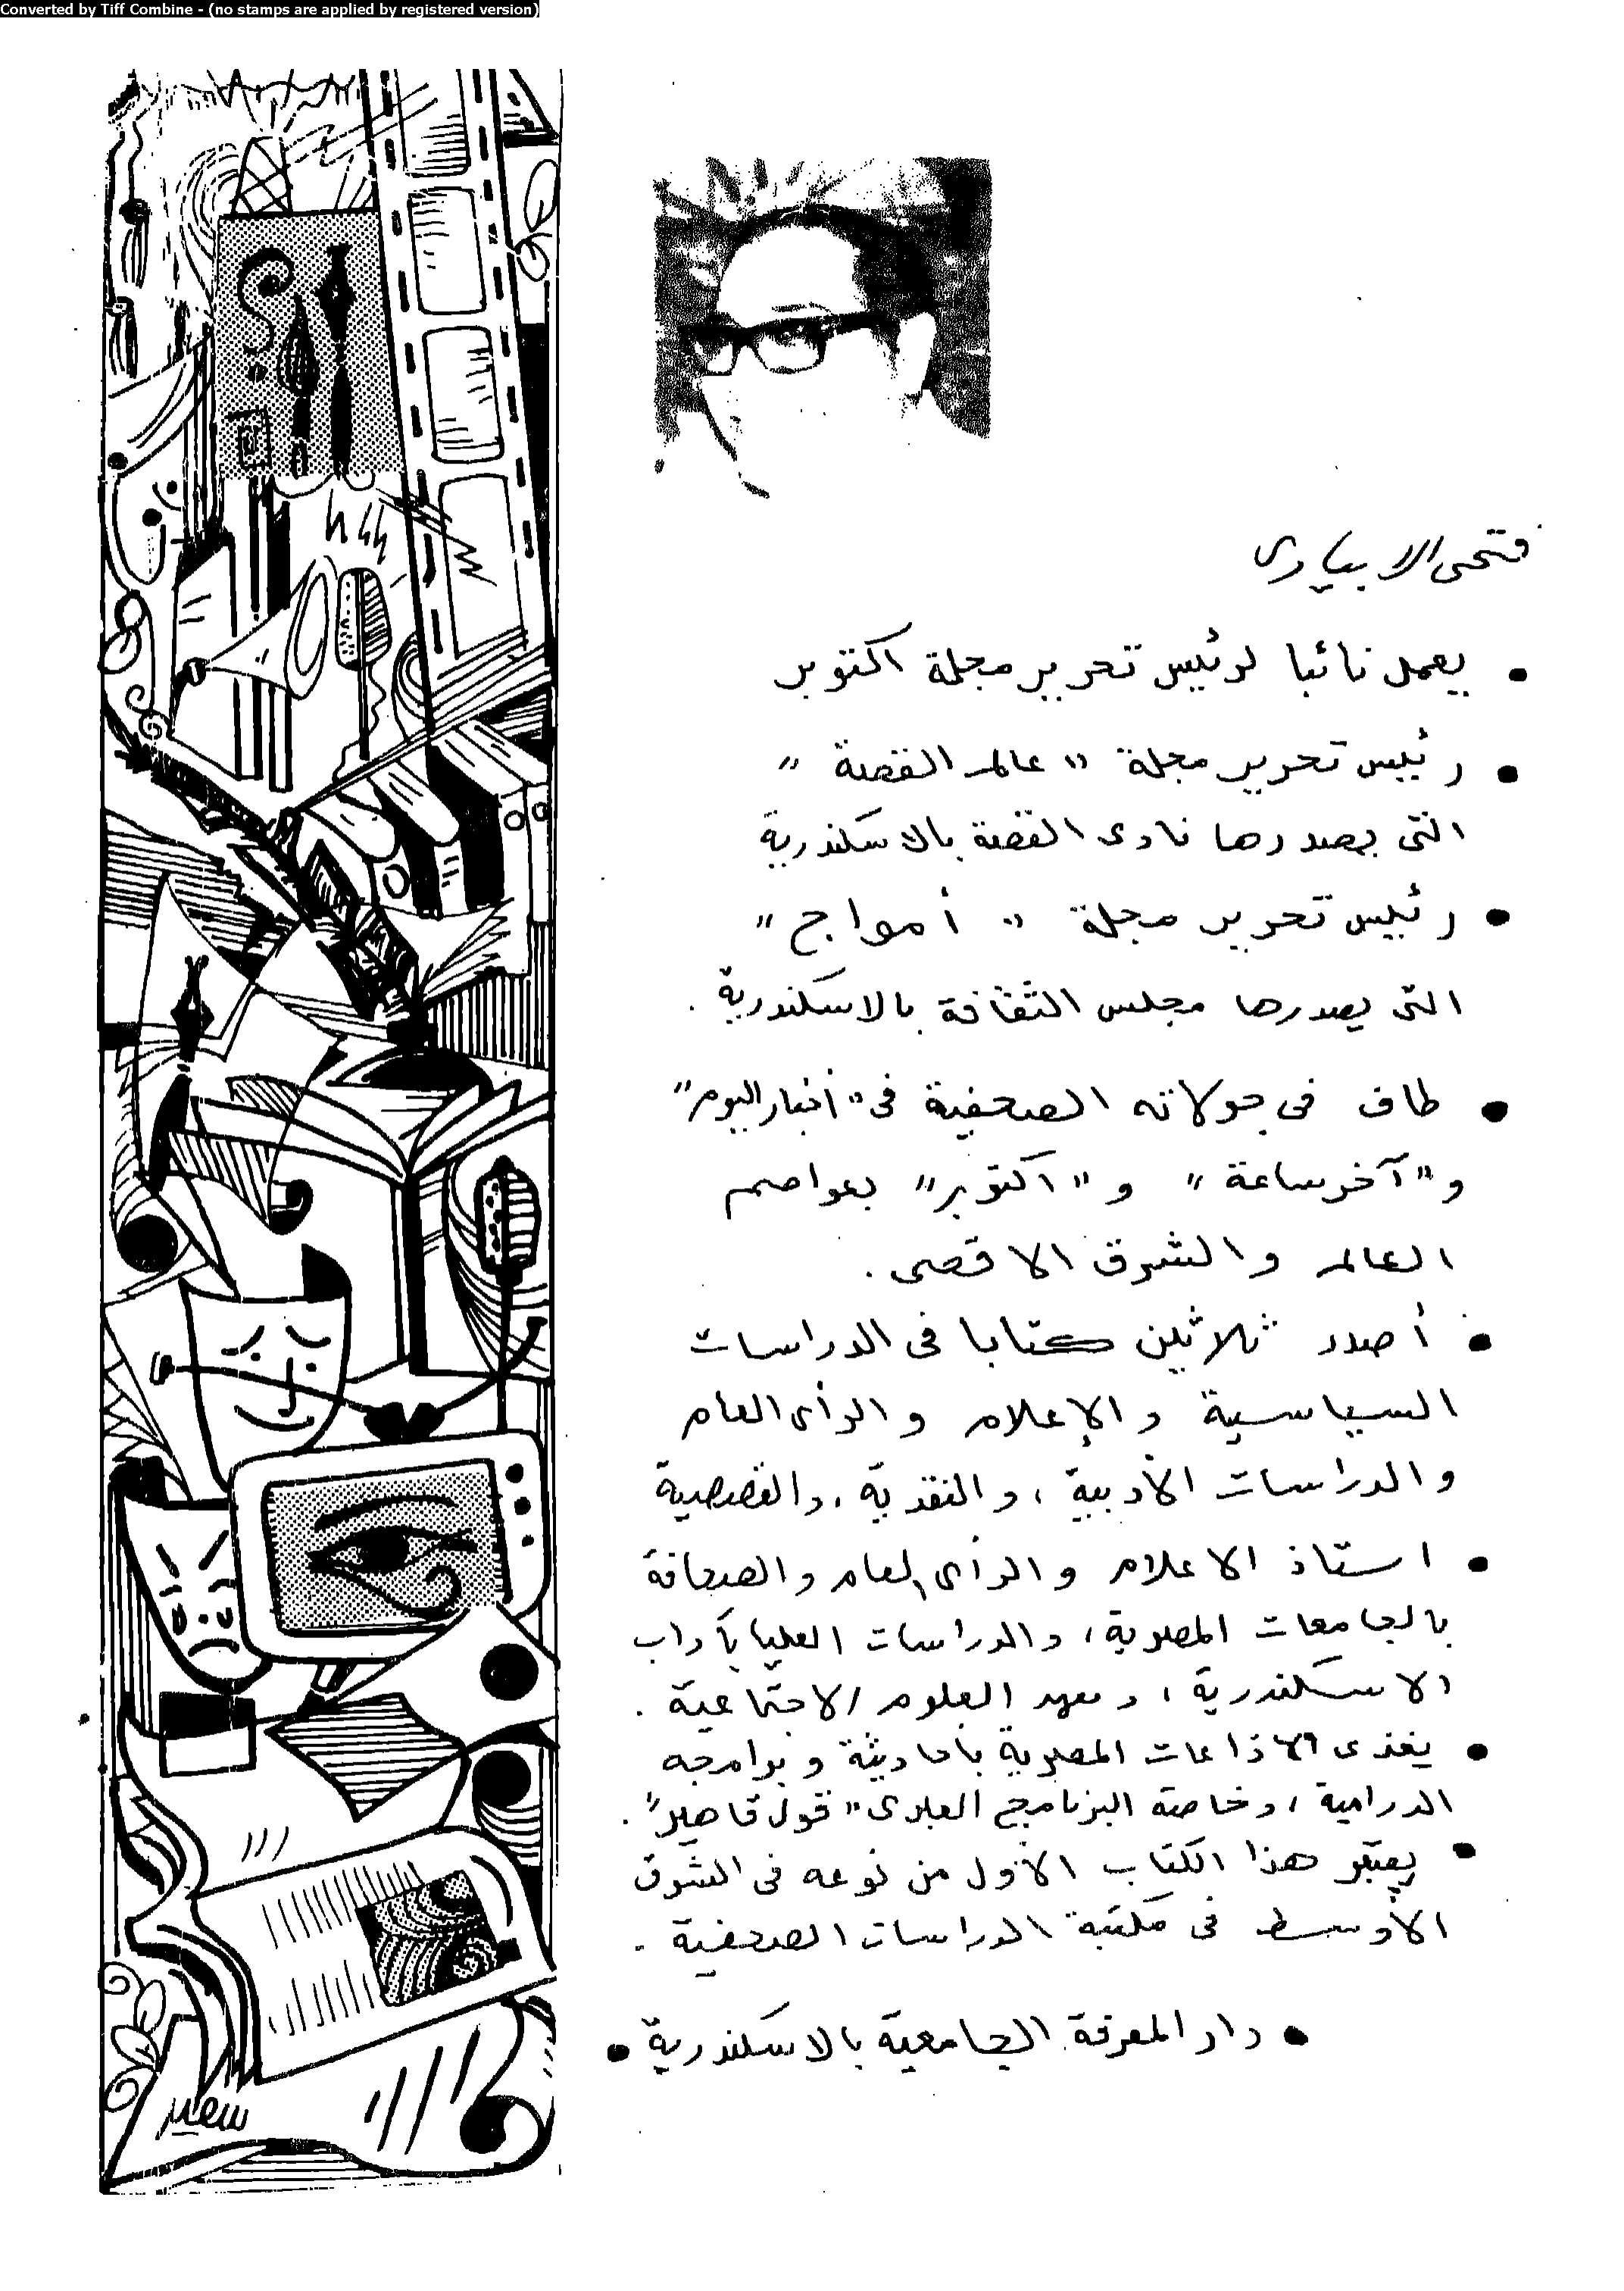 Converted by Tiff Combine - (no stamps are applied by registered version)
فتحى الابيارى
• يعمل نائبا لرئيس تحرير مجلة اكتوبر
• رئيس تحرير مجلة " عالم القصة "
التى يصدرها نادى القصة بالاسكندرية
• رئيس تحرير مجلة " أمواج "
التى يصدرها مجلس الثقافة بالاسكندرية .
• طاف فى جولاته الصحفية فى " أخبار اليوم "
و " آخر ساعة " و " اكتوبر " بعواصم
العالم والشرق الاقصى .
• أصدر ثلاثين كتابا فى الدراسات
السياسية والإعلام والرأى العام
والدراسات الأدبية ، والنقدية ، والقصصية
• استاذ الاعلام والرأى العام والصحافة
بالجامعات المصرية ، والدراسات العليا بآداب
الاسكندرية ، ومعهد العلوم الاجتماعية .
• يغذى الاذاعات المصرية باحاديثة وبرامجه
الدرامية ، وخاصة البرنامج العبرى " قول قاهير " .
• يعتبر هذا الكتاب الأول من نوعه فى الشرق
الأوسط فى مكتبة الدراسات الصحفية .
• دار المعرفة الجامعية بالاسكندرية •